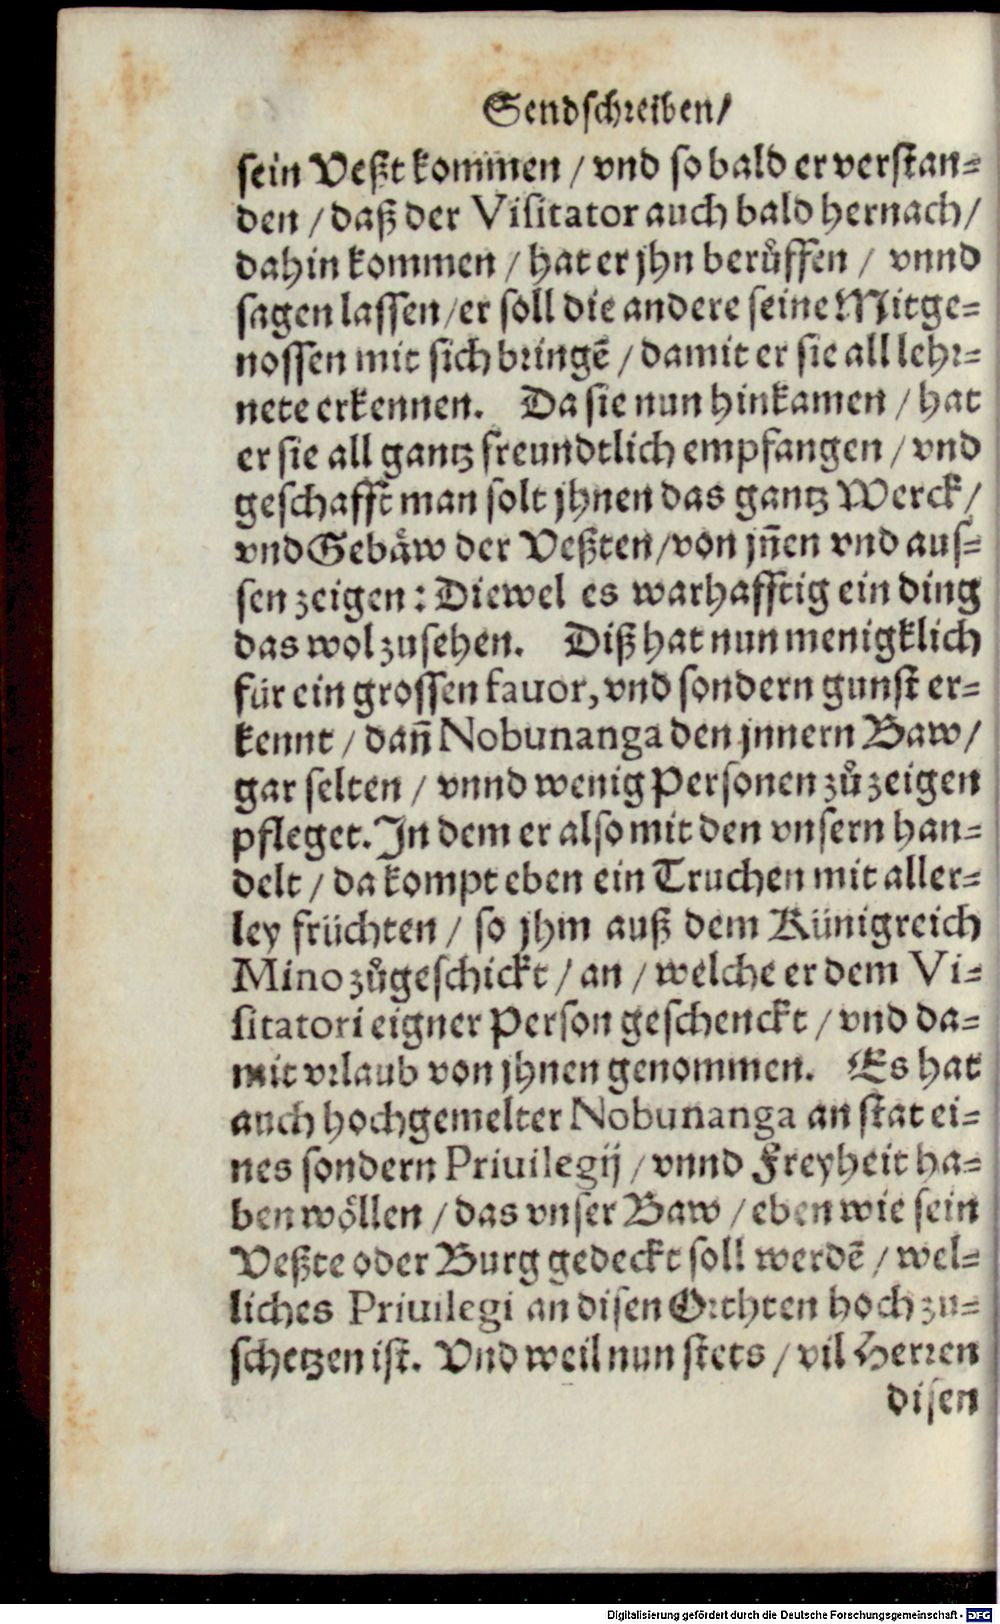 Sendschreiben/
sein Veßt kommen / vnd so bald er verstan-
den / daß der Visitator auch bald hernach/
dahin kommen / hat er jhn berůffen / vnnd
sagen lassen/er soll die andere seine Mitge-
nossen mit sich bringẽ / damit er sie all lehr-
nete erkennen. Da sie nun hinkamen / hat
er sie all gantz freundtlich empfangen / vnd
geschafft man solt jhnen das gantz Werck/
vnd Gebäw der Veßten/von jñen vnd aus-
sen zeigen: Diewel es warhafftig ein ding
das wol zusehen. Diß hat nun menigklich
für ein grossen fauor, vnd sondern gunst er-
kennt / dañ Nobunanga den jnnern Baw/
gar selten / vnnd wenig Personen zů zeigen
pfleget. In dem er also mit den vnsern han-
delt / da kompt eben ein Truchen mit aller-
ley früchten / so jhm auß dem Künigreich
Mino zůgeschickt / an / welche er dem Vi-
sitatori eigner Person geschenckt / vnd da-
mit vrlaub von jhnen genommen. Es hat
auch hochgemelter Nobunanga an stat ei-
nes sondern Priuilegij / vnnd Freyheit ha-
ben wöllen / das vnser Baw / eben wie sein
Veßte oder Burg gedeckt soll werdẽ / wel-
liches Priuilegi an disen Orthten hoch zu-
schetzen ist. Vnd weil nun stets / vil Herren
disen
Digitalisierung gefördert durch die Deutsche Forschungsgemeinschaft - DFG